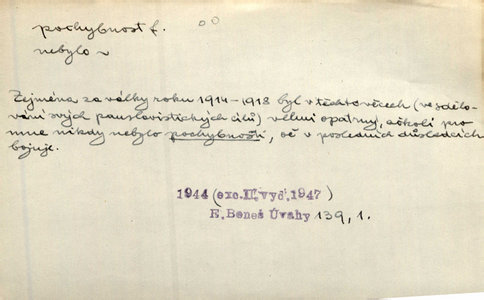 pochybnost f.
nebylo ~
Zejména za války roku 1914–1918 byl v těchto věcech (ve sdělo-
vání svých panslavistických cílů) velmi opatrný, ačkoli pro
mne nikdy nebylo pochybnosti, oč v posledních důsledcích
bojuje.
1944 (exc. II. vyd. 1947)
E. Beneš Úvahy 139, 1.